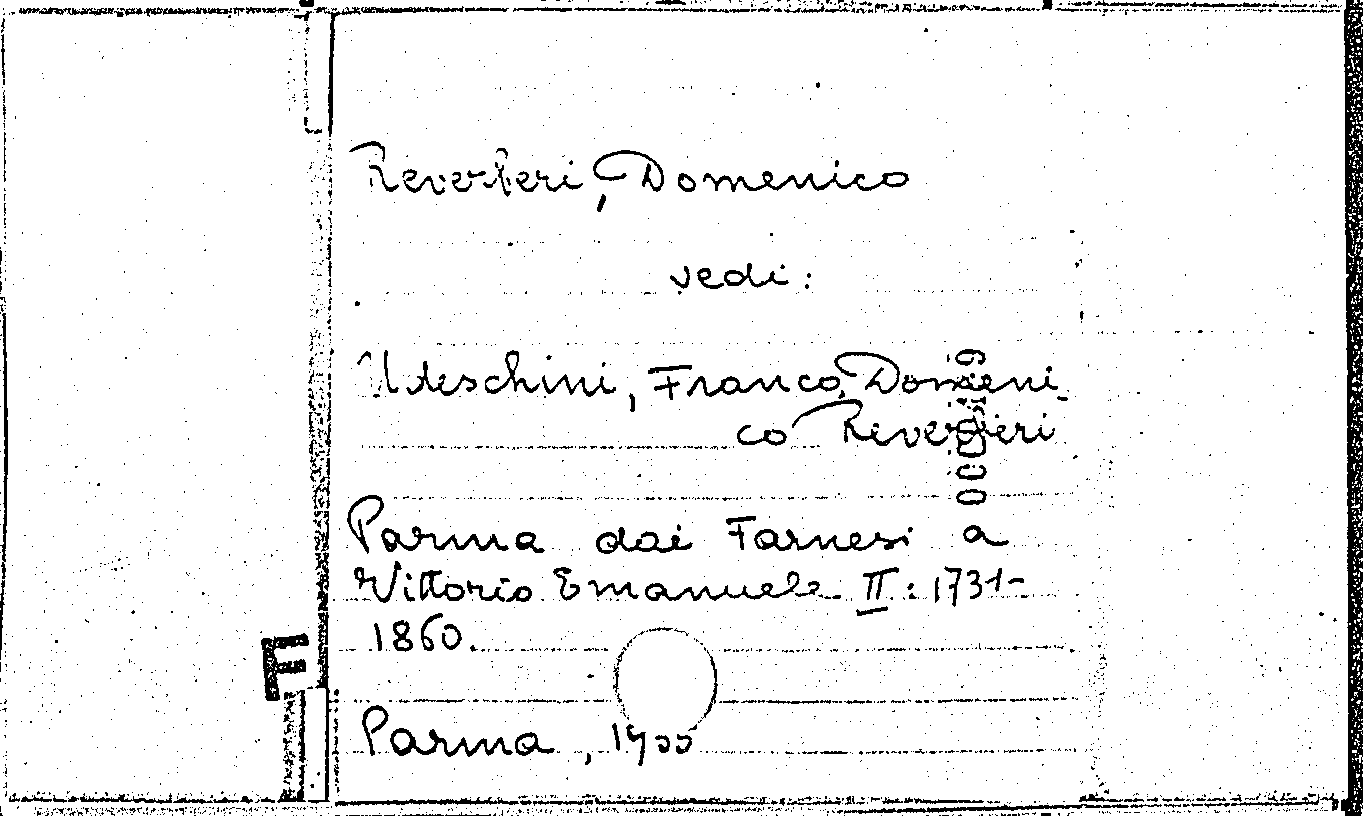 Reverberi, Domenico
vedi:
Franco, Domeni-
co Reverberi
Parma dai Farnesi a
Vittorio Emanuele II: 1731-
1860.
Parma, 1955
F